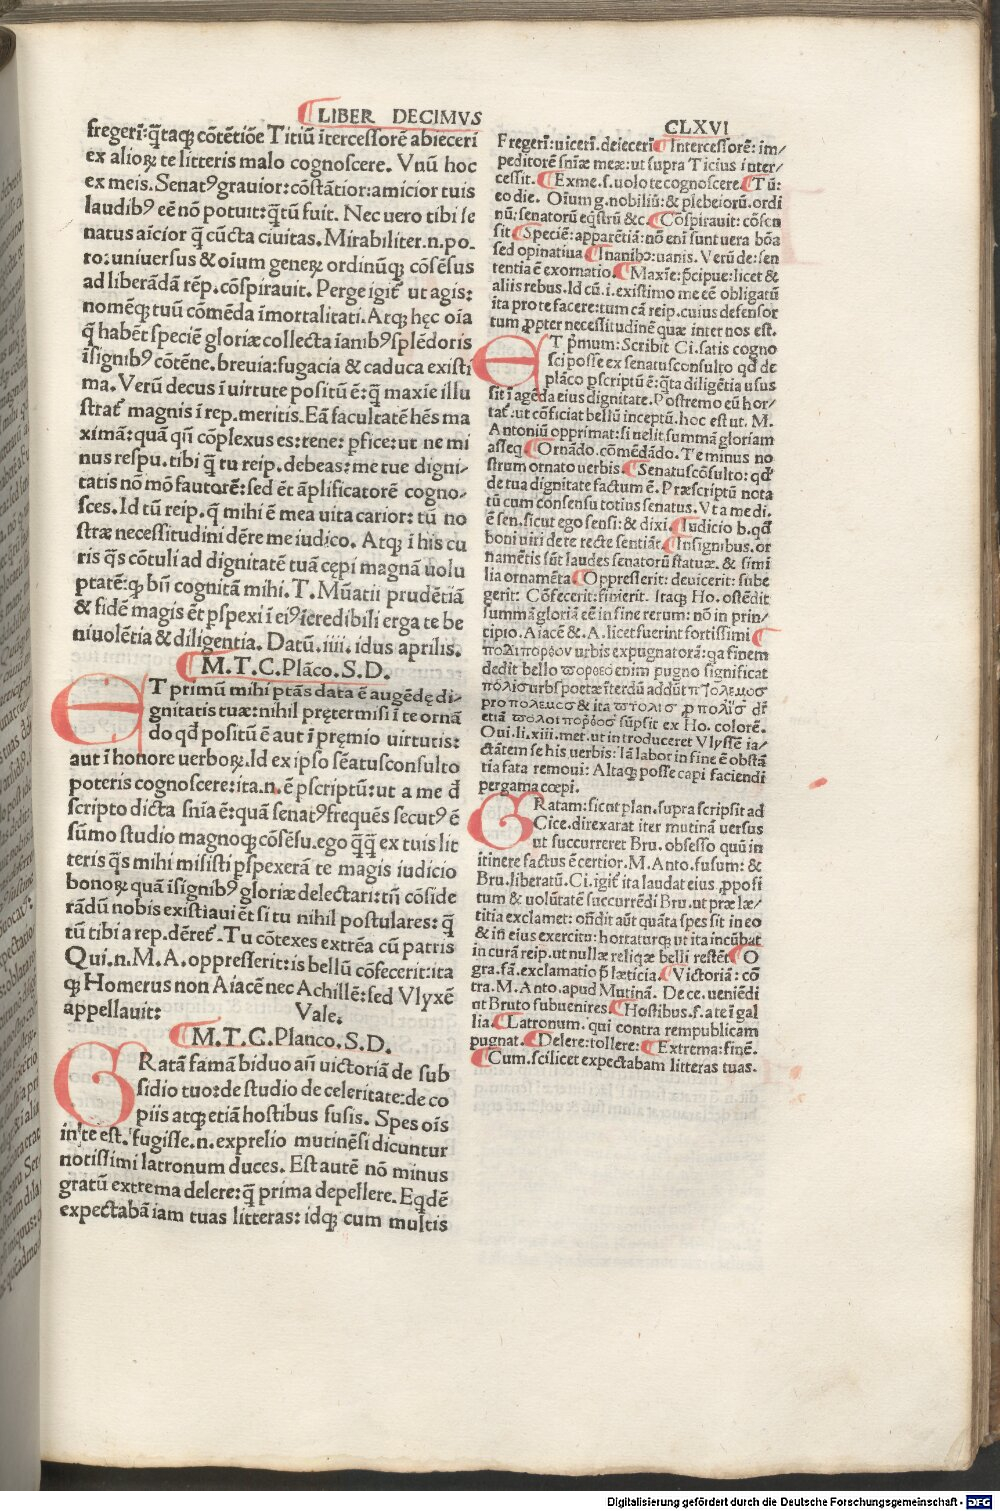 LIBER DECIMVS
CLXVI
fregerī: q̄taqꝫ cōtētiōe Titiū ītercessorē abiecerī
ex alioꝝ te litteris malo cognoscere. Vnū hoc
ex meis. Senatꝰ grauior: cōstātior: amicior tuis
laudibꝰ eē nō potuit: q̄tū fuit. Nec uero tibi se
natus aīcior q̄ cūcta ciuitas. Mirabiliter .n. po-
ro: uniuersus & oīum geneꝝ ordinūqꝫ cōsēsus
ad liberādā rēp. cōspirauit. Perge igit̄ ut agis:
nomēqꝫ tuū cōmēda īmortalitati. Atqꝫ hęc oīa
q̄ habēt speciē gloriæ collecta īanibꝰ splēdoris
īsignibꝰ cōtēne. breuia: fugacia & caduca existi
ma. Verū decus ī uirtute positū ē: q̄ maxīe illu
strat̄ magnis ī rep. meritis. Eā facultatē hēs ma
ximā: quā qn̄ cōplexus es: tene: pfice: ut ne mi
nus respu. tibi q̄ tu reip. debeas: me tue digni-
tatis nō mō fautorē: sed ēt āplificatorē cogno-
sces. Id tū reip. q̄ mihi ē mea uita carior: tū no
stræ necessitudini dēre me iudico. Atqꝫ ī his cu
ris q̄s cōtuli ad dignitatē tuā cępi magnā uolu
ptatē: qꝫ bn̄ cognitā mihi. T. Mūatii prudētiā
& fidē magis ēt pspexi ī eiꝰ īcredibili erga te be
niuolētia & diligentia. Datū. iiii. idus aprilis.
M.T.C. Plāco. S.D.
ET primū mihi ptās data ē augēdę di-
gnitatis tuæ: nihil prętermisi ī te ornā
do qd̄ positū ē aut ī pręmio uirtutis:
aut ī honore uerboꝝ. Id ex ipso sēatusconsulto
poteris cognoscere: ita .n. ē pscriptū: ut a me d̄
scripto dicta snīa ē: quā senatꝰ frequēs secutꝰ ē
sūmo studio magnoqꝫ cōsēsu. ego q̄q̄ ex tuis lit
teris q̄s mihi misisti pspexerā te magis iudicio
bonoꝝ quā īsignibꝰ gloriæ delectari: tn̄ cōside
rādū nobis existiaui ēt si tu nihil postulares: q̄
tū tibi a rep. dēret̄. Tu cōtexes extrēa cū patris
Qui .n. M. A. oppresserit: is bellū cōfecerit: ita
qꝫ Homerus non Aiacē nec Achillē: sed Vlyxē
appellauit: Vale.
M.T.C. Planco. S.D.
GRatā famā biduo añ uictoriā de sub
sidio tuo: de studio de celeritate: de co
piis atqꝫ etiā hostibus fusis. Spes oīs
in te est. fugisse .n. ex prelio mutinēsi dicuntur
notissimi latronum duces. Est autē nō minus
gratū extrema delere: q̄ prima depellere. Eqdē
expectabā iam tuas litteras: idqꝫ cum multis
Fregerī: uicerī. deiecerī Intercessorē: im-
peditorē snīæ meæ: ut supra Ticius inter-
cessit. Ex me. s. uolo te cognoscere. Tū:
eo die. Oīum g. nobiliū: & plebeiorū. ordi
nū: senatorū eq̄strū &c. Cōspirauit: cōsen
sit Speciē: apparētiā: nō enī sunt uera bōa
sed opinatiua Inanibꝰ: uanis. Verū de: sen
tentia ē exornatio. Maxīe: pcipue: licet &
aliis rebus. Id cū. i. existimo me eē obligatū
ita pro te facere: tum cā reip. cuius defensor
tum ꝓpter necessitudinē quæ inter nos est.
ET pmum: Scribit Ci. satis cogno
sci posse ex senatusconsulto qd̄ de
plāco pscriptū ē: q̄ta diligētia usus
sit ī agēda eius dignitate. Postremo eū hor-
tat̄: ut cōficiat bellū inceptū. hoc est ut. M.
Antoniū opprimat: si uelit summā gloriam
asseq. Ornādo. cōmēdādo. Te minus no
strum ornato uerbis. Senatuscōsulto: qd̄
de tua dignitate factum ē. Præscriptū nota
tū cum consensu totius senatus. Vt a me di-
ē sen. sicut ego sensi: & dixi. Iudicio b. qd̄
boni uiri de te recte sentiāt. Insignibus. or
namētis sūt laudes senatorū statuæ. & simi
lia ornamēta Oppresserit: deuicerit: sube
gerit: Cōfecerit: finierit. Itaqꝫ Ho. ostēdit
summā gloriā eē in fine rerum: nō in prin-
cipio. Aiacē & .A. licet fuerint fortissimi
πολιπορθον urbis expugnatorā: qa finem
dedit bello ϖορθεο enim pugno significat
πολισ urbs poetæ īterdū addūt πτολεμοσ
pro πολεμοσ & ita ϖτολισ ꝓ πολισ dr̄
etiā ϖολοι πορθοσ sūpsit ex Ho. colorē.
Oui. li. xiii. met. ut introduceret Vlyssē ia-
ctātem se his uerbis: Iā labor in fine ē obstā
tia fata remoui: Altaqꝫ posse capi faciendi
pergama cœpi.
GRatam: sicut plan. supra scripsit ad
Cice. direxarat iter mutinā uersus
ut succurreret Bru. obsesso quū in
itinere factus ē certior. M. Anto. fusum: &
Bru. liberatū. Ci. igit̄ ita laudat eius ꝓposi
tum & uolūtatē succurrēdi Bru. ut præ læ-
titia exclamet: oñdit aūt quāta spes sit in eo
& in eius exercitu: hortaturqꝫ ut ita incūbat
in curā reip. ut nullæ reliqæ belli restēt. O
gra. fā. exclamatio p̄ læticia. Victoriā: cō
tra. M. Anto. apud Mutinā. De ce. ueniēdi
ut Bruto subuenires. Hostibus. s. a te ī gal
lia. Latronum. qui contra rempublicam
pugnat. Delere: tollere: Extrema: finē.
Cum. scilicet expectabam litteras tuas.
Digitalisierung gefördert durch die Deutsche Forschungsgemeinschaft - DFG